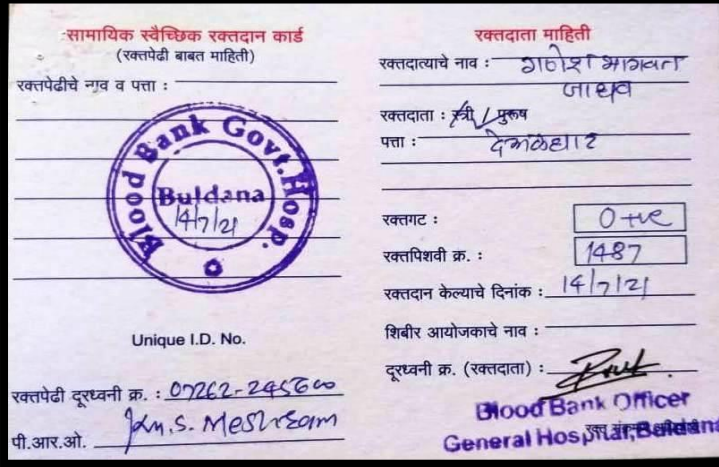 सामायिक स्वैच्छिक रक्तदान कार्ड
(रक्तपेढी बाबत माहिती)
रक्तपेढीचे नाव व पत्ता :
Blood Bank Govt. Hosp.
Buldana
14/7/21
Unique I.D. No.
रक्तपेढी दूरध्वनी क्र. : 07262-245600
पी.आर.ओ.
रक्तदाता माहिती
रक्तदात्याचे नाव : गणेश भागवत
जाधव
रक्तदाता : स्त्री / पुरूष
पत्ता : देऊळघाट
रक्तगट : O +ve
रक्तपिशवी क्र. : 1487
रक्तदान केल्याचे दिनांक : 14/7/21
शिबीर आयोजकाचे नाव :
दूरध्वनी क्र. (रक्तदाता) :
Blood Bank Officer
General Hospital, Buldana